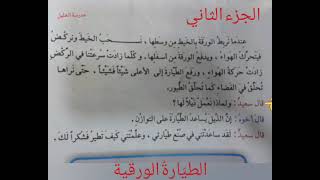 الجزء الثاني
مدرسة الخليل
عِندَما نَربِطُ الوَرَقَةَ بالخَيطِ مِن وسطِها ، نَسْحَبُ الخَيطَ ونَركُضُ
فيتحرَّكُ الهواءُ ، ويدفعُ الورقةَ من أسفلِها ، وكلَّما زادَتْ سرعَتُنا في الرَّكضِ
زادَتْ حركةُ الهواءِ ، ورفعَ الطيّارةَ إلى الأعلى شيئاً فشيئاً ، حتّى نراها
تُحلِّقُ في الفضاءِ كما تُحلِّقُ الطُّيورُ.
قالَ سعيدٌ : ولماذا نَعملُ ذَيلاً لها؟
قالَ أخوهُ : إنَّ الذَّيلَ يُساعدُ الطَّيّارةَ على التوازُنِ.
قالَ سعيدٌ : لَقد ساعَدْتَني في صُنْعِ طيّارتي ، وعلَّمْتَني كيفَ تطيرُ فشُكراً لكَ .
الطيّارةُ الورقية